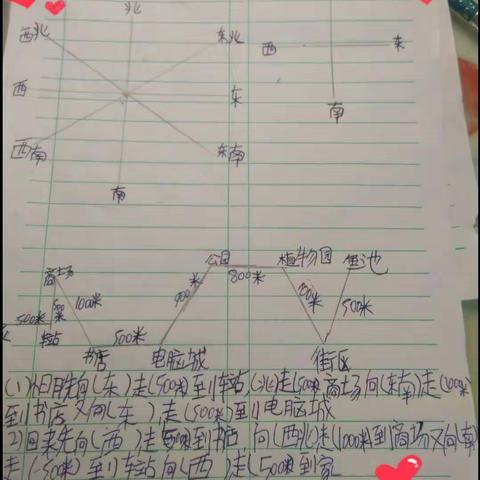 北
西北 东北
西 东
西 东
西南 东南
南
南
公园 植物园 鱼池
800米
商场 900米
500米 1000米 500米
500米
车站 书店 电脑城 街区
(1)小明先向(东)走(500米)到车站,(北)走(500米)商场向(东南)走(1000米)
到书店又向(东)走(500米)到电脑城
2)回来先向(西)走500米到书店 向(西北)走(1000米)到商场又向(南)
走(500米)到车站向(西)走(500米)到家